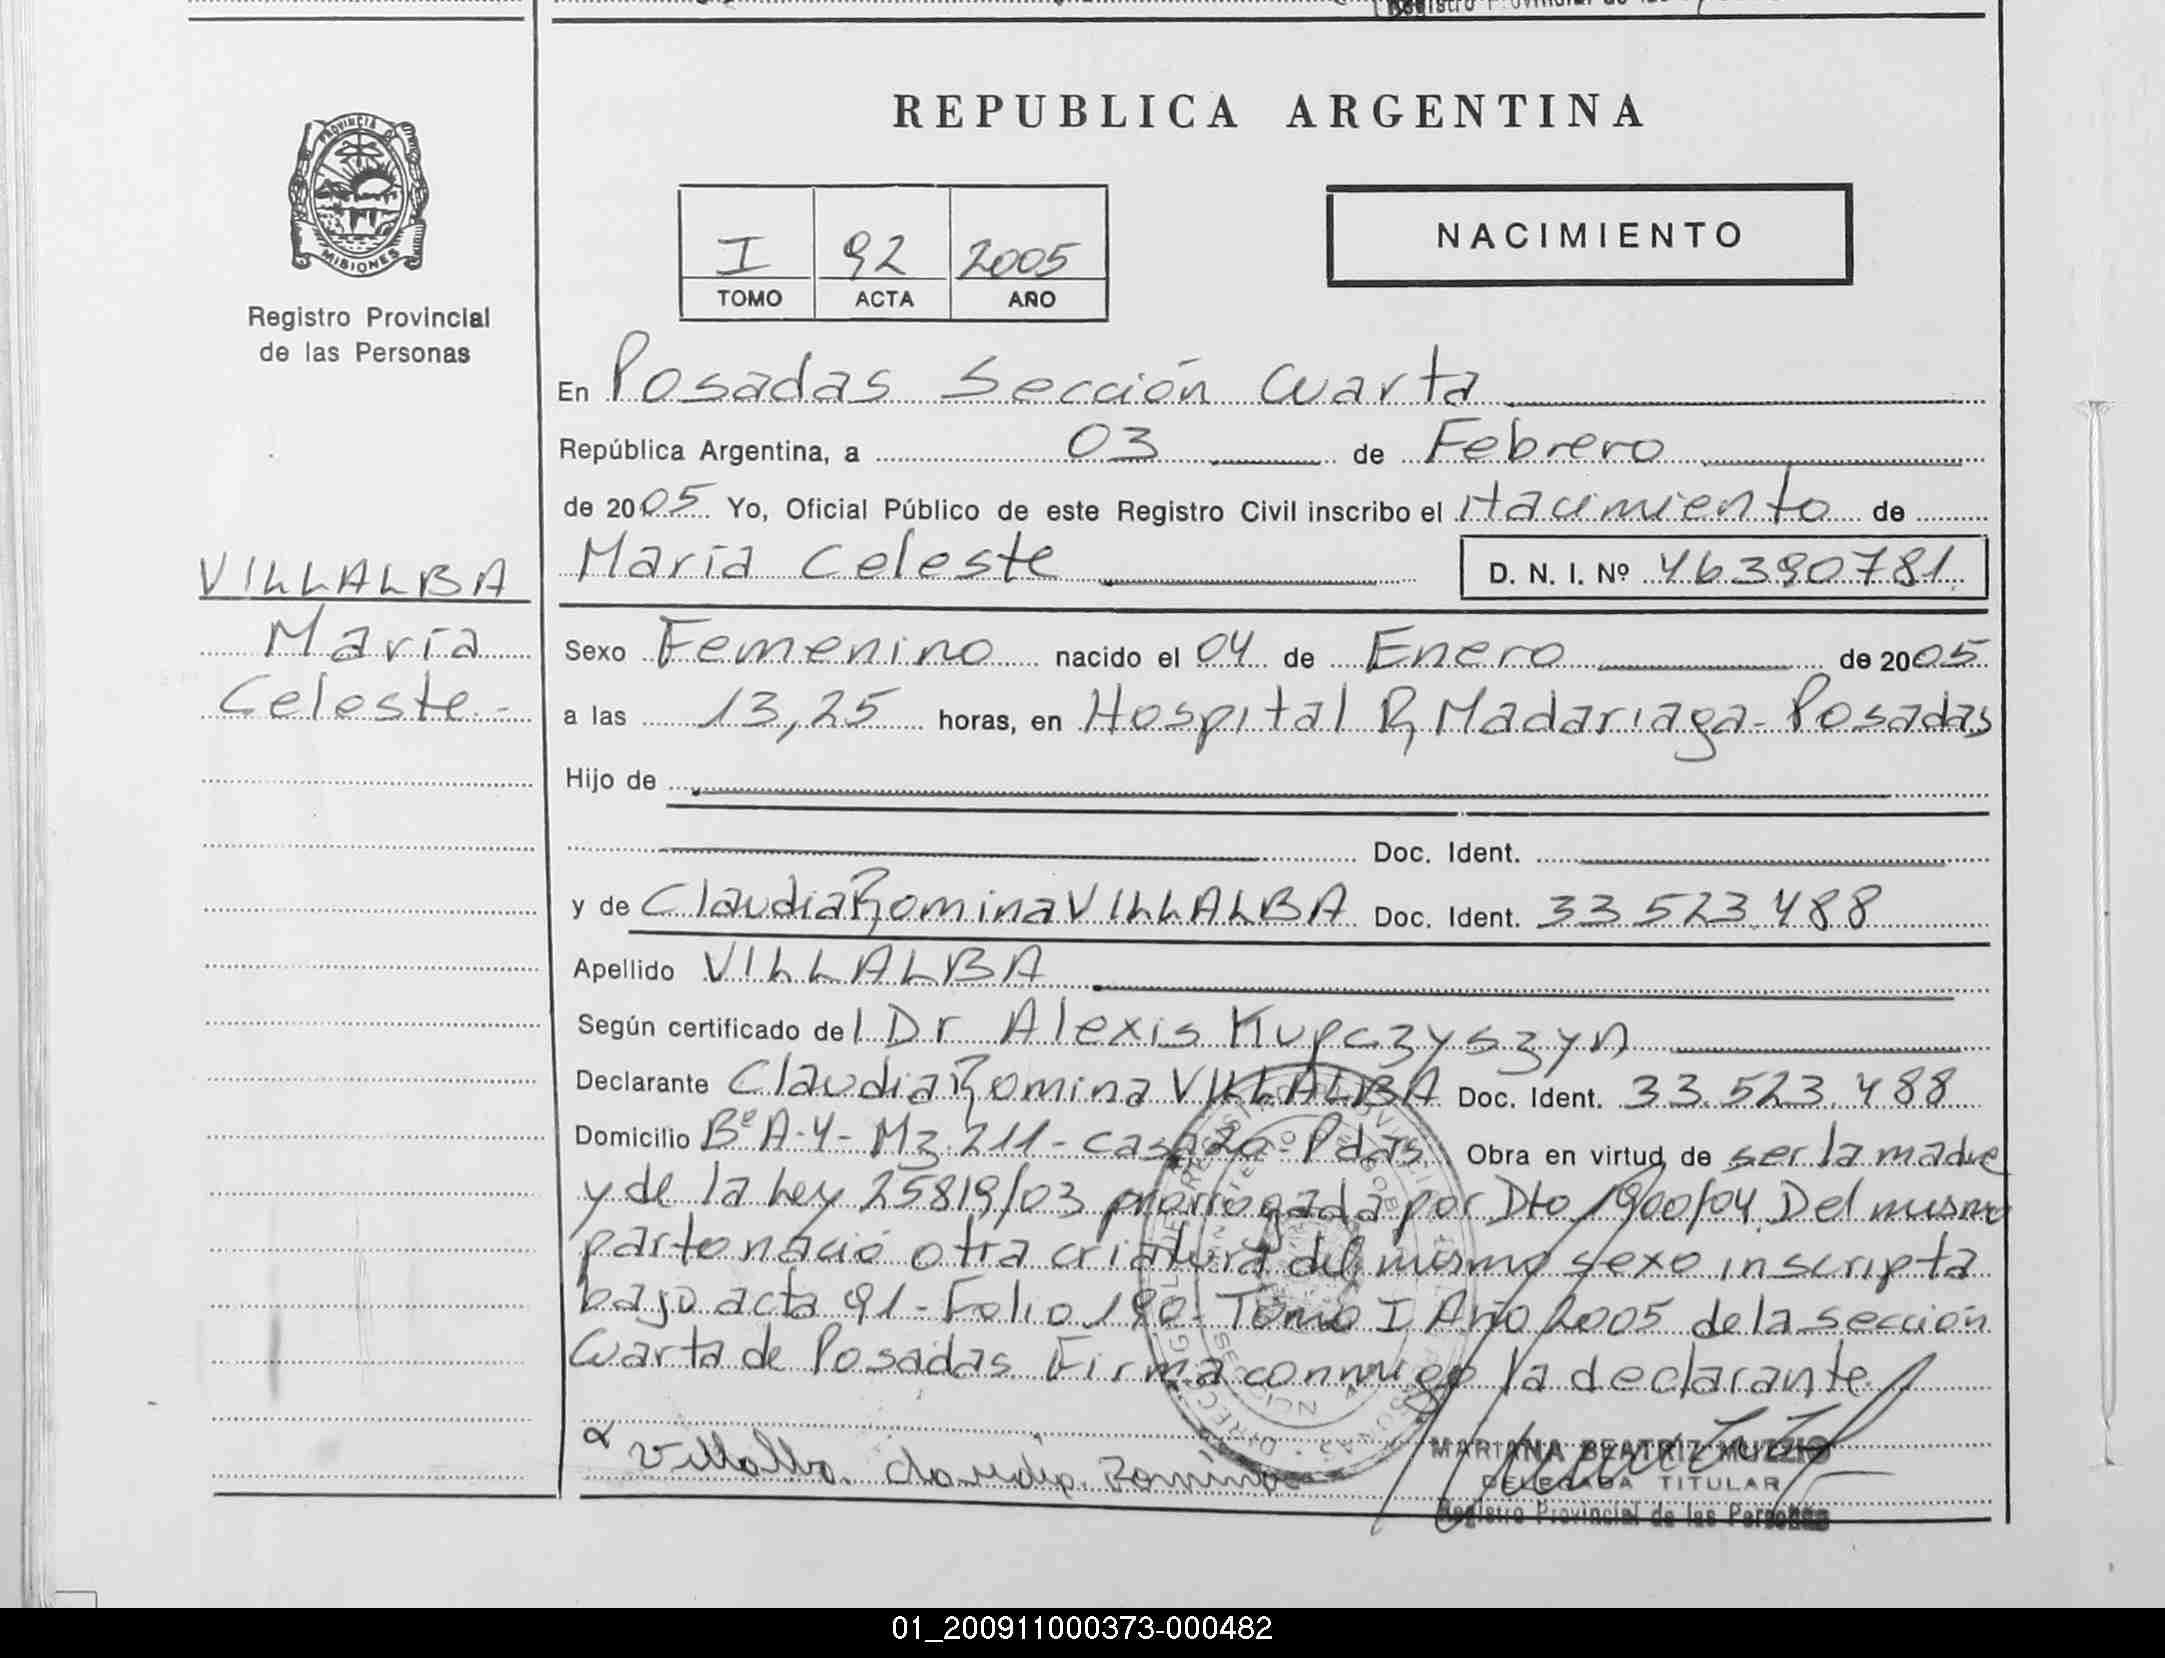 REPUBLICA ARGENTINA
PROVINCIA DE
MISIONES
Registro Provincial
de las Personas
I 92 2005
TOMO ACTA AÑO
NACIMIENTO
En Posadas Sección Cuarta
República Argentina, a 03 de Febrero
de 2005 Yo, Oficial Público de este Registro Civil inscribo el Nacimiento de
María Celeste D. N. I. Nº 46390781
VILLALBA
María
Celeste.-
Sexo Femenino nacido el 04 de Enero de 2005
a las 13,25 horas, en Hospital R, Madariaga - Posadas
Hijo de
Doc. Ident.
y de Claudia Romina VILLALBA Doc. Ident. 33.523.488
Apellido VILLALBA
Según certificado del Dr Alexis Kupczyszyn
Declarante Claudia Romina VILLALBA Doc. Ident. 33.523.488
Domicilio Bº A-4- Mz.211- casa 20- Pdas. Obra en virtud de ser la madre
y de la Ley 25819/03 prorrogada por Dto 1900/04. Del mismo
parto nació otra criatura del mismo sexo inscripta
bajo acta 91- Folio 190- Tomo I Año 2005 de la sección
Cuarta de Posadas. Firma conmigo la declarante
Villalba Claudia Romina
MARIANA BEATRIZ MUZZIO
DELEGADA TITULAR
Registro Provincial de las Personas
01_200911000373-000482